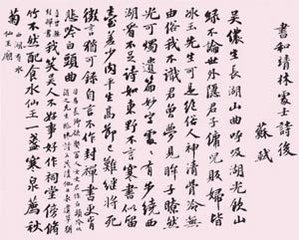 書和靖林處士詩後
蘇軾
吳儂生長湖山曲呼吸湖光飲山
綠不論世外隱君子傭兒販婦皆
冰玉先生可是絕俗人神清骨冷無
由俗我不識君曾夢見眸子瞭然
光可燭遺篇妙字處處有步繞西
湖看不足詩如東野不言寒書似留
臺差少肉平生高節已難繼將死
微言猶可錄自言不作封禪書更肯
悲吟白頭曲
我笑吳人不好事好作祠堂傍修
竹不然配食水仙王一盞寒泉薦秋
菊
仙王廟